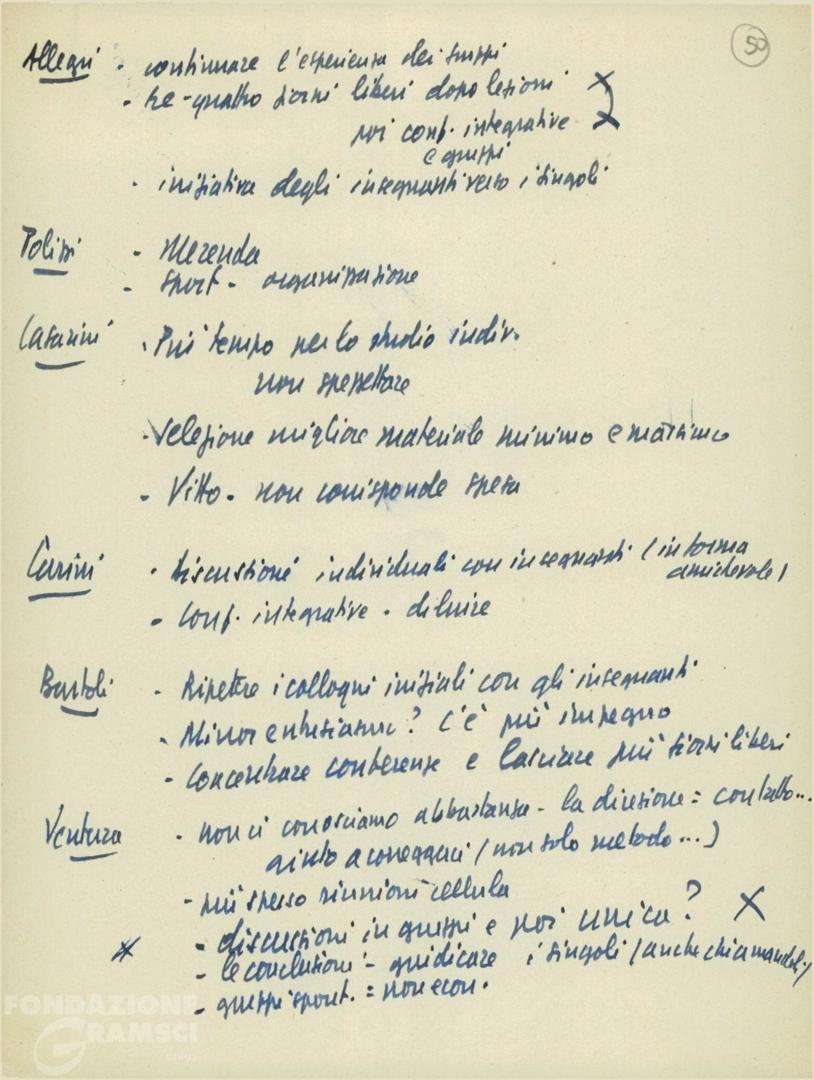 50
Allegri - continuare l'esperienza dei gruppi
- tre-quattro giorni liberi dopo lezioni X
poi conf. integrative X
e gruppi
- iniziativa degli insegnanti verso i singoli
- Merenda
- Sport - organizzazione
Casarini - Più tempo per lo studio indiv.
non spezzettare
- Selezione migliore materiale minimo e massimo
- Vitto - non corrisponde spesa
- discussioni individuali con insegnanti (in forma
amichevole)
- conf. integrative - diluire
Bartoli - Ripetere i colloqui iniziali con gli insegnanti
- Minor entusiasmo? C'è più impegno
- Concentrare conferenze e lasciare più giorni liberi
Ventura - non ci conosciamo abbastanza - la direzione = contatto...
aiuto a correggerci (non solo metodo...)
- più spesso riunioni cellula
- discussioni in gruppi e poi unica? X
- le conclusioni - giudicare i singoli (anche chiamandoli)
- gruppi spont. = non econ.
FONDAZIONE
GRAMSCI